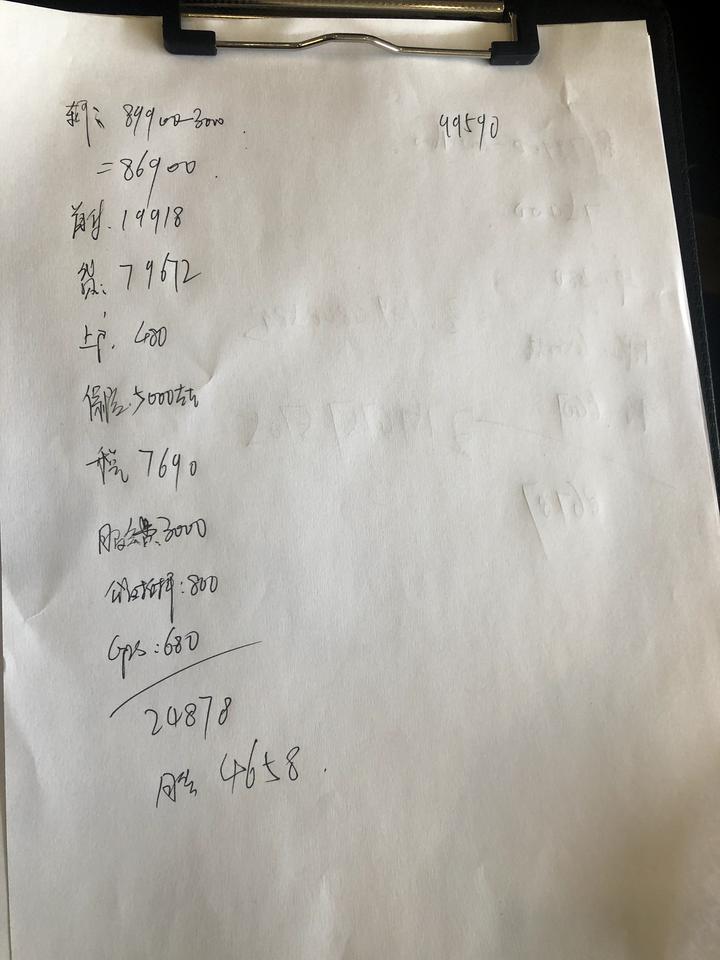 车: 89900-3000 99590
=86900.
首付. 19918
贷: 79672
上户. 480
保险. 5000左右
税 7690
服务费. 3000
抵押: 800
GPS: 680
24878
月供 4658.